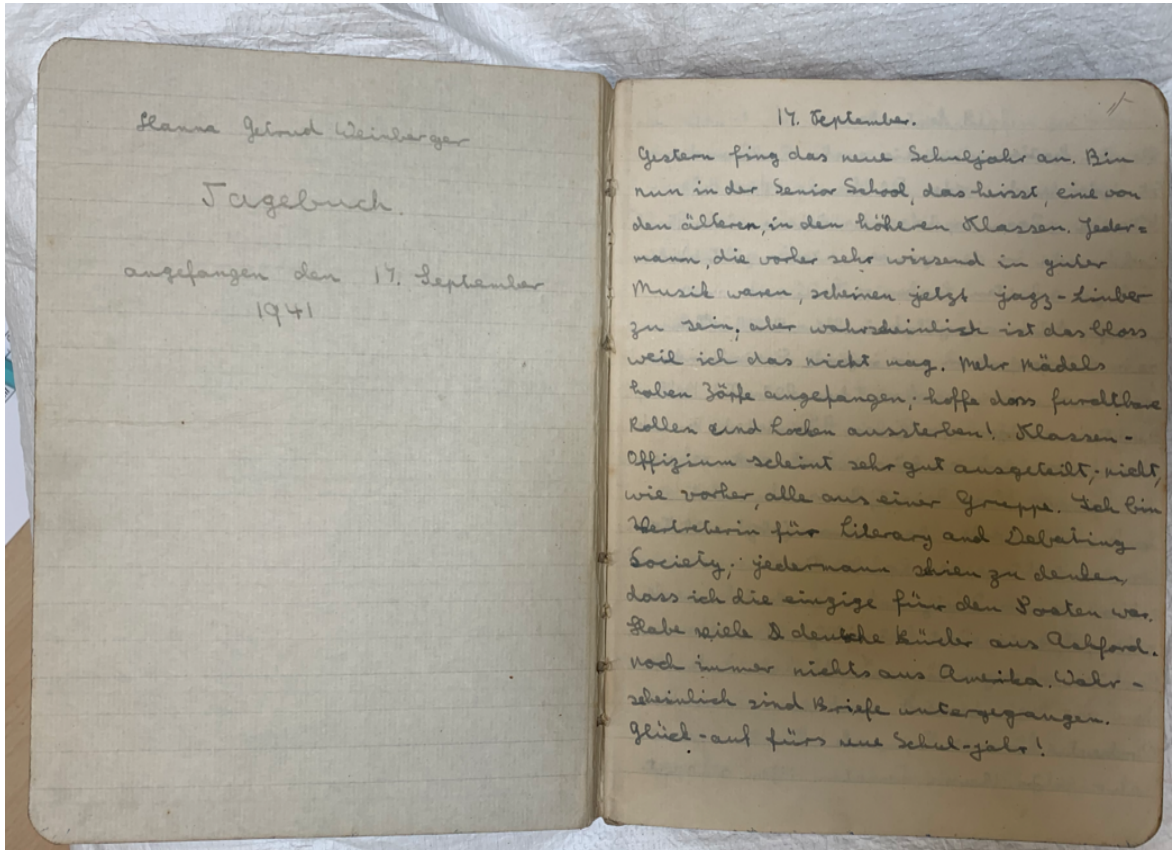 Hanna Getrud Weinberger
Tagebuch.
angefangen den 17. September
1941
17. September.
Gestern fing das neue Schuljahr an. Bin
nun in der Senior School, das heisst, eine von
den älteren, in den höheren Klassen. Jeder=
mann, die vorher sehr wissend in guter
Musik waren, scheinen jetzt jazz-
zu sein; aber wahrscheinlich ist das bloss
weil ich das nicht mag. Mehr Mädels
haben Zöpfe angefangen; hoffe dass furchtbare
Rollen und Locken aussterben! Klassen-
Offizium scheint sehr gut ausgeteilt; nicht,
wie vorher, alle aus einer Gruppe. Ich bin
Vertreterin für Literary and Debating
Society; jedermann schien zu denken,
dass ich die einzige für den Posten war.
Habe viele deutsche Bücher aus Ashford.
Noch immer nichts aus Amerika. Wahr-
scheinlich sind Briefe untergegangen.
Glück-auf fürs neue Schul-jahr!